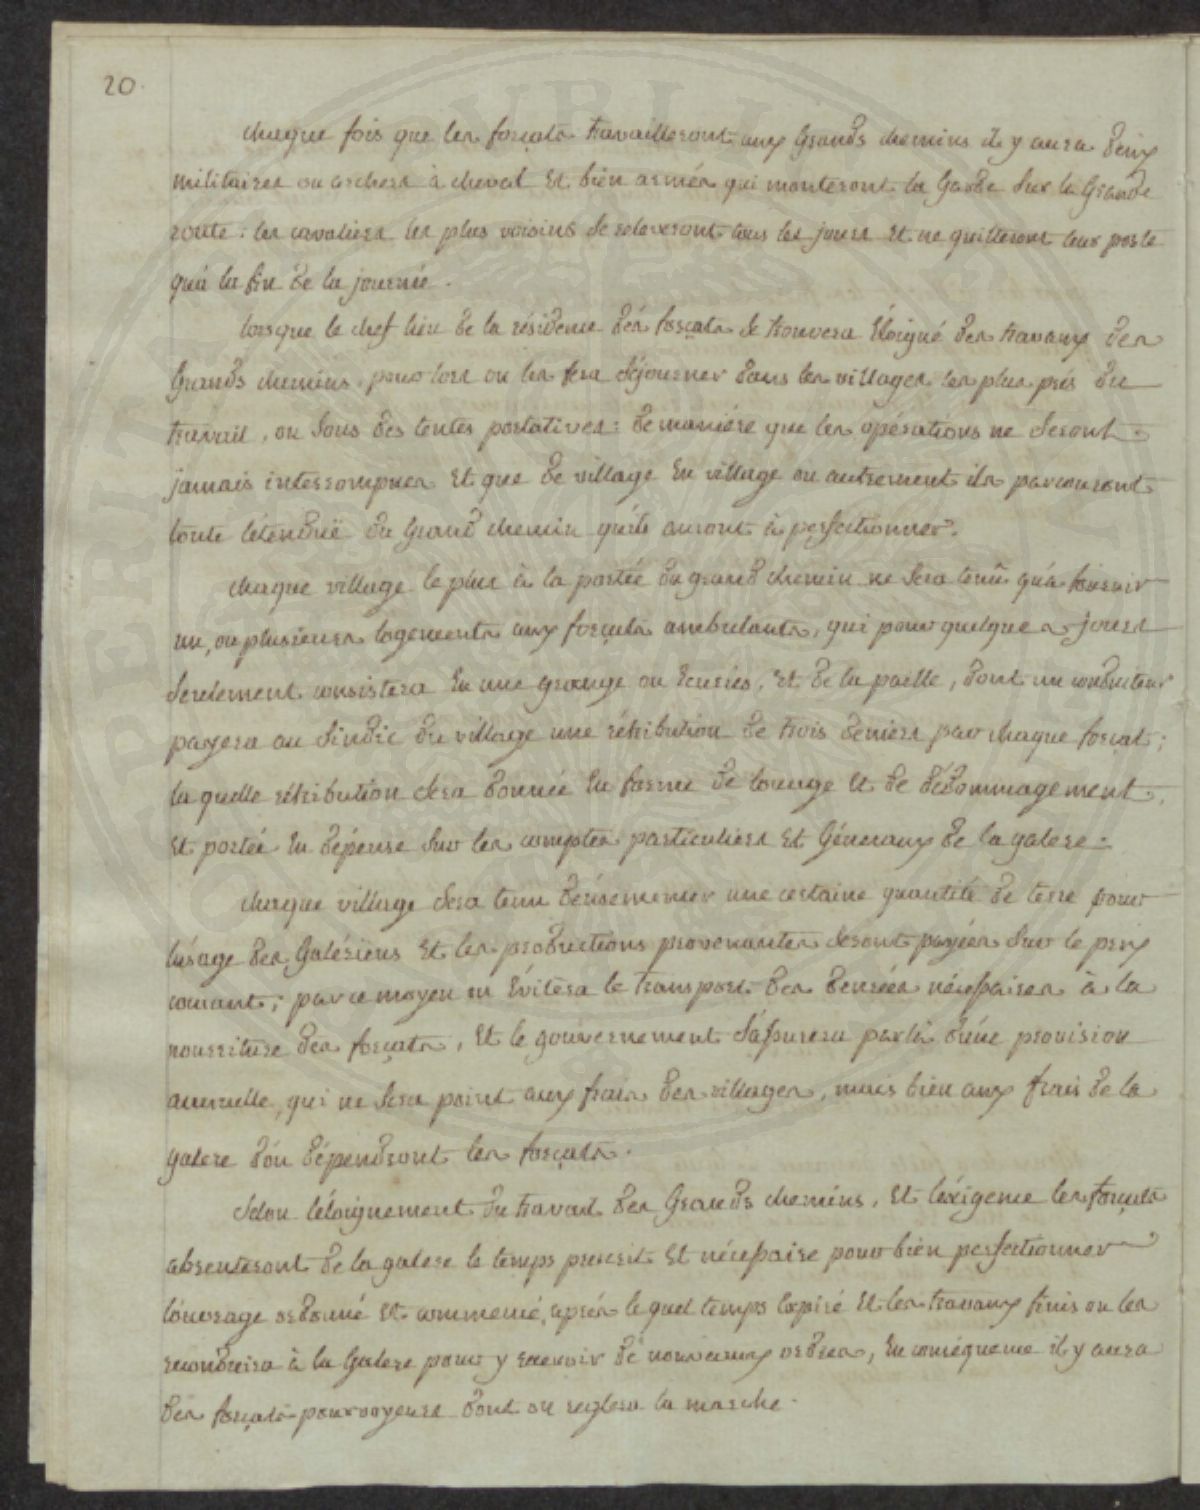 20.
chaque fois que les forçats travailleront aux Grands chemins il y aura deux
militaires ou archers à cheval et bien armés qui monteront la Garde sur la Grande
route: les cavaliers les plus voisins se releveront tous les jours et ne quitteront leur poste
qu'à la fin de la journée.
lorsque le chef lieu de la résidence dés forçats se trouvera Éloigné des travaux des
Grands chemins, pour lors on les fera séjourner dans les villages les plus prés du
travail, ou sous des tentes portatives: de maniére que les opérations ne seront
jamais interrompues et que de village en village ou autrement ils parcouront
toute l'étenduë du Grand chemin qu'ils auront à perfectionner.
chaque village le plus à la portée du grand chemin ne sera tenû qu'à fournir
un, ou plusieurs logements aux forçats ambulants, qui pour quelques jours
seulement consistera en une grange ou Ecuries, et de la paille, dont un conducteur
payera au sindic du village une rétribution de trois deniers par chaque forçat;
la quelle rétribution sera donnée en forme de louage et de dédommagement,
et portée en dépense sur les comptes particuliers et Géneraux de la galere.
chaque village sera tenu d'ensemencer une certaine quantité de terre pour
l'usage des Galériens et les productions provenantes seront payées sur le prix
courant; par ce moyen on évitera le transport des denrées nécessaires à la
nourriture des forçats, et le gouvernement s'assurera par là d'une provision
annuelle, qui ne sera point aux frais des villages, mais bien aux frais de la
galere d'où dépendront les forçats.
Selon l'éloignement du travail des Grands chemins, et l'éxigence les forçats
absenteront de la galere le temps prescrit et nécessaire pour bien perfectionner
l'ouvrage ordonné et commencé, aprés le quel temps expiré et les travaux finis on les
reconduira à la Galere pour y recevoir de nouveaux ordres, en conséquence il y aura
des forçats pourvoyeurs dont on reglera la marche.